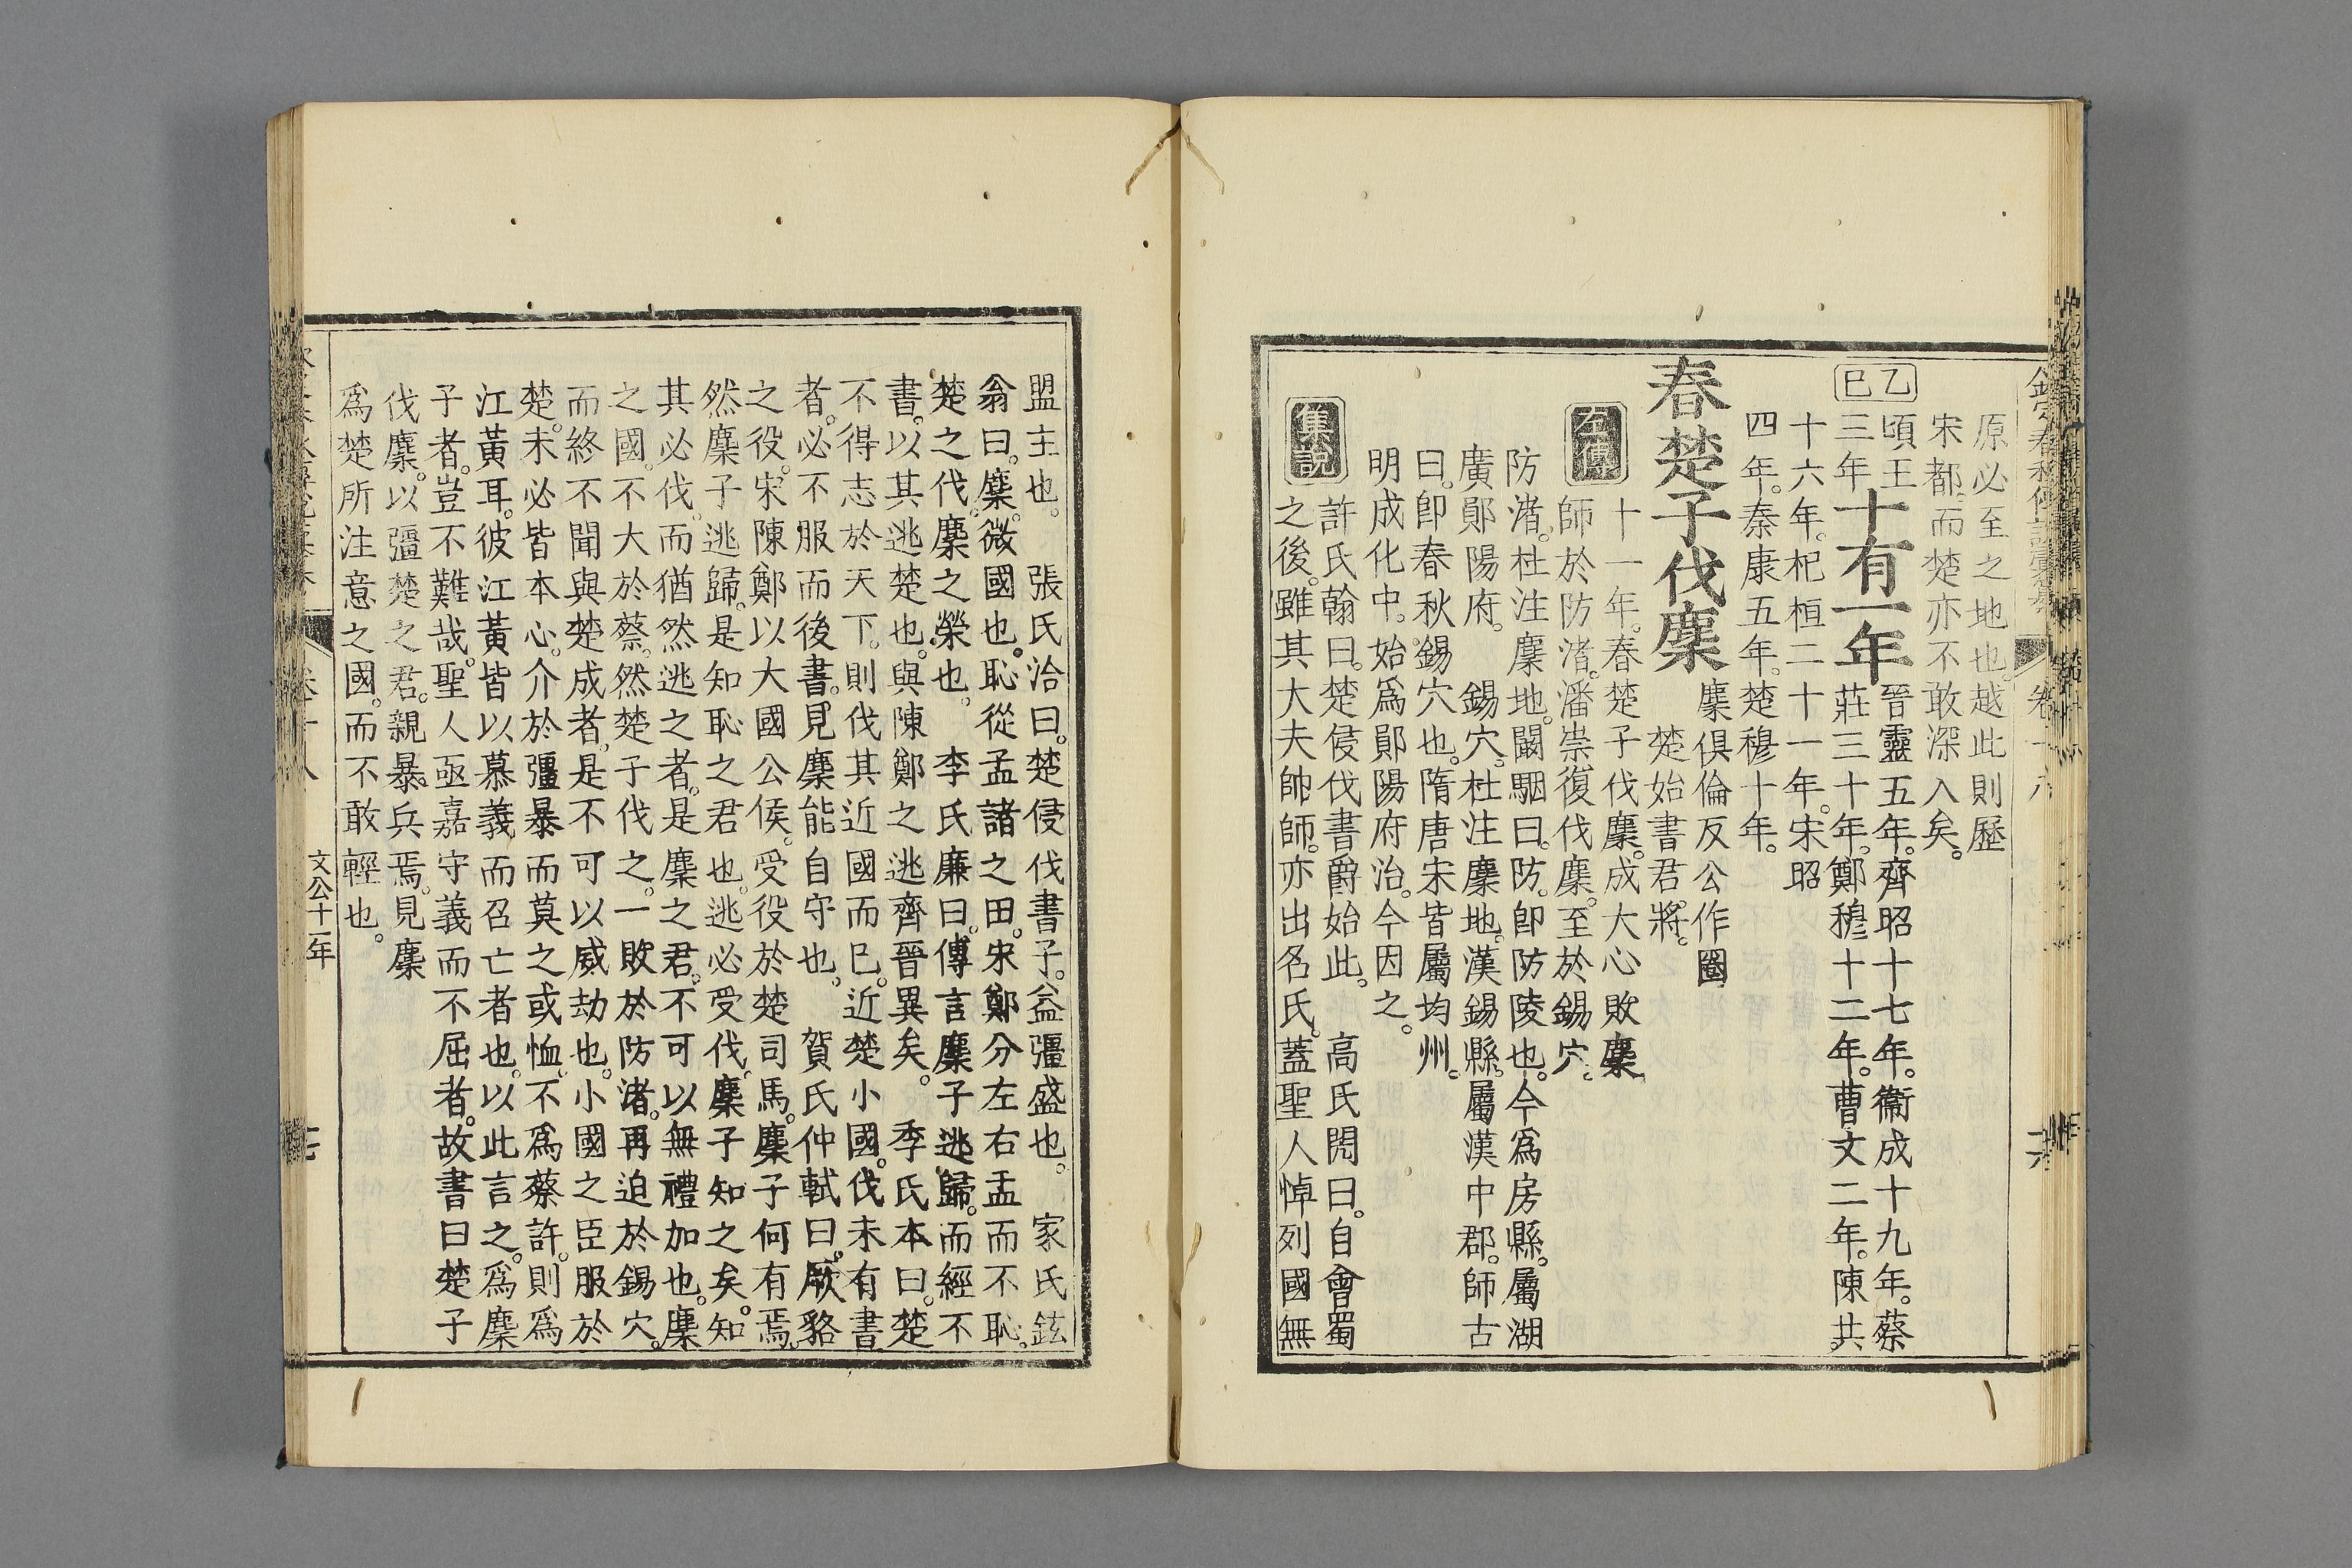 原必至之地也。越此則歷
宋都。而楚亦不敢深入矣。
乙巳
頃王三年
十有一年
晉靈五年。齊昭十七年。衞成十九年。蔡
莊三十年。鄭穆十二年。曹文二年。陳共。
十六年。杞桓二十一年。宋昭
四年。秦康五年。楚穆十年。
春楚子伐麇
麇俱倫反公作圈
楚始書君。將。
左傳
十一年。春楚子伐麇。成大心敗麇
師於防渚。潘崇復伐麇。至於錫穴。
防渚。杜注麇地。闞駰曰。防。卽防陵也。今爲房縣。屬湖
廣鄖陽府。 錫穴。杜注麇地。漢錫縣。屬漢中郡。師古
曰。卽春秋錫穴也。隋唐宋皆屬均州。
明成化中。始爲鄖陽府治。今因之。
集說
許氏翰曰。楚侵伐書爵始此。 高氏閌曰。自會蜀
之後。雖其大夫帥師。亦出名氏。蓋聖人悼列國無
盟主也。 張氏洽曰。楚侵伐書子。益彊盛也。 家氏鉉
翁曰。麇。微國也。恥從孟諸之田。宋鄭分左右盂而不恥。
楚之伐。麇之榮也。 李氏廉曰。傳言麇子逃歸。而經不
書。以其逃楚也。與陳鄭之逃齊晉異矣。 季氏本曰。楚
不得志於天下。則伐其近國而已。近楚小國。伐未有書
者。必不服而後書。見麇能自守也。 賀氏仲軾曰。厥貉
之役。宋陳鄭以大國公侯。受役於楚司馬。麇子何有焉。
然麇子逃歸。是知恥之君也。逃必受伐。麇子知之矣。知
其必伐。而猶然逃之者。是麇之君。不可以無禮加也。麇
之國。不大於蔡。然楚子伐之。一敗於防渚。再迫於錫穴。
而終不聞與楚成者。是不可以威劫也。小國之臣服於
楚。未必皆本心。介於彊暴而莫之或恤。不爲蔡許。則爲
江黃耳。彼江黃皆以慕義而召亡者也。以此言之。爲麇
子者。豈不難哉。聖人亟嘉守義而不屈者。故書曰楚子
伐麇。以彊楚之君。親暴兵焉。見麇
爲楚所注意之國。而不敢輕也。
文公十一年